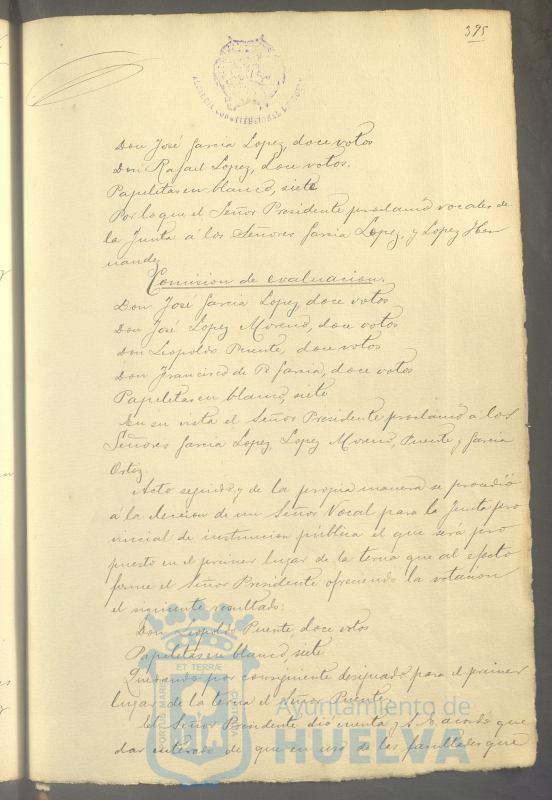 395
ALCALDIA CONSTITUCIONAL
Don José Garcia Lopez, doce votos
Don Rafael Lopez, doce votos.
Papeletas en blanco, siete
Por lo que el Señor Presidente proclamó vocales de
la Junta á los Señores Garcia Lopez, y Lopez Her
nandez
Comision de evaluacion.
Don José Garcia Lopez doce votos
Don José Lopez Moreno, doce votos
Don Leopoldo Puente, doce votos
Don Francisco de P. Garcia, doce votos
Papeletas en blanco, siete
En su vista el Señor Presidente proclamó á los
Señores Garcia Lopez, Lopez Moreno, Puente y Garcia
Ortiz.
Acto seguido, y de la propia manera se procedió
á la eleccion de un Señor Vocal para la Junta pro
vincial de instruccion pública el que será pro
puesto en el primer lugar de la terna que al efecto
forme el Señor Presidente ofreciendo la votacion
el siguiente resultado:
Don Leopoldo Puente doce votos
Papeletas en blanco, siete
Quedando por consiguiente designado para el primer
lugar de la terna el Señor Puente
El Señor Presidente dió cuenta y S. S. acordó que
dar enterado de que en uso de las facultades que
PORTUS MARIS ET TERRÆ
Ayuntamiento de
HUELVA